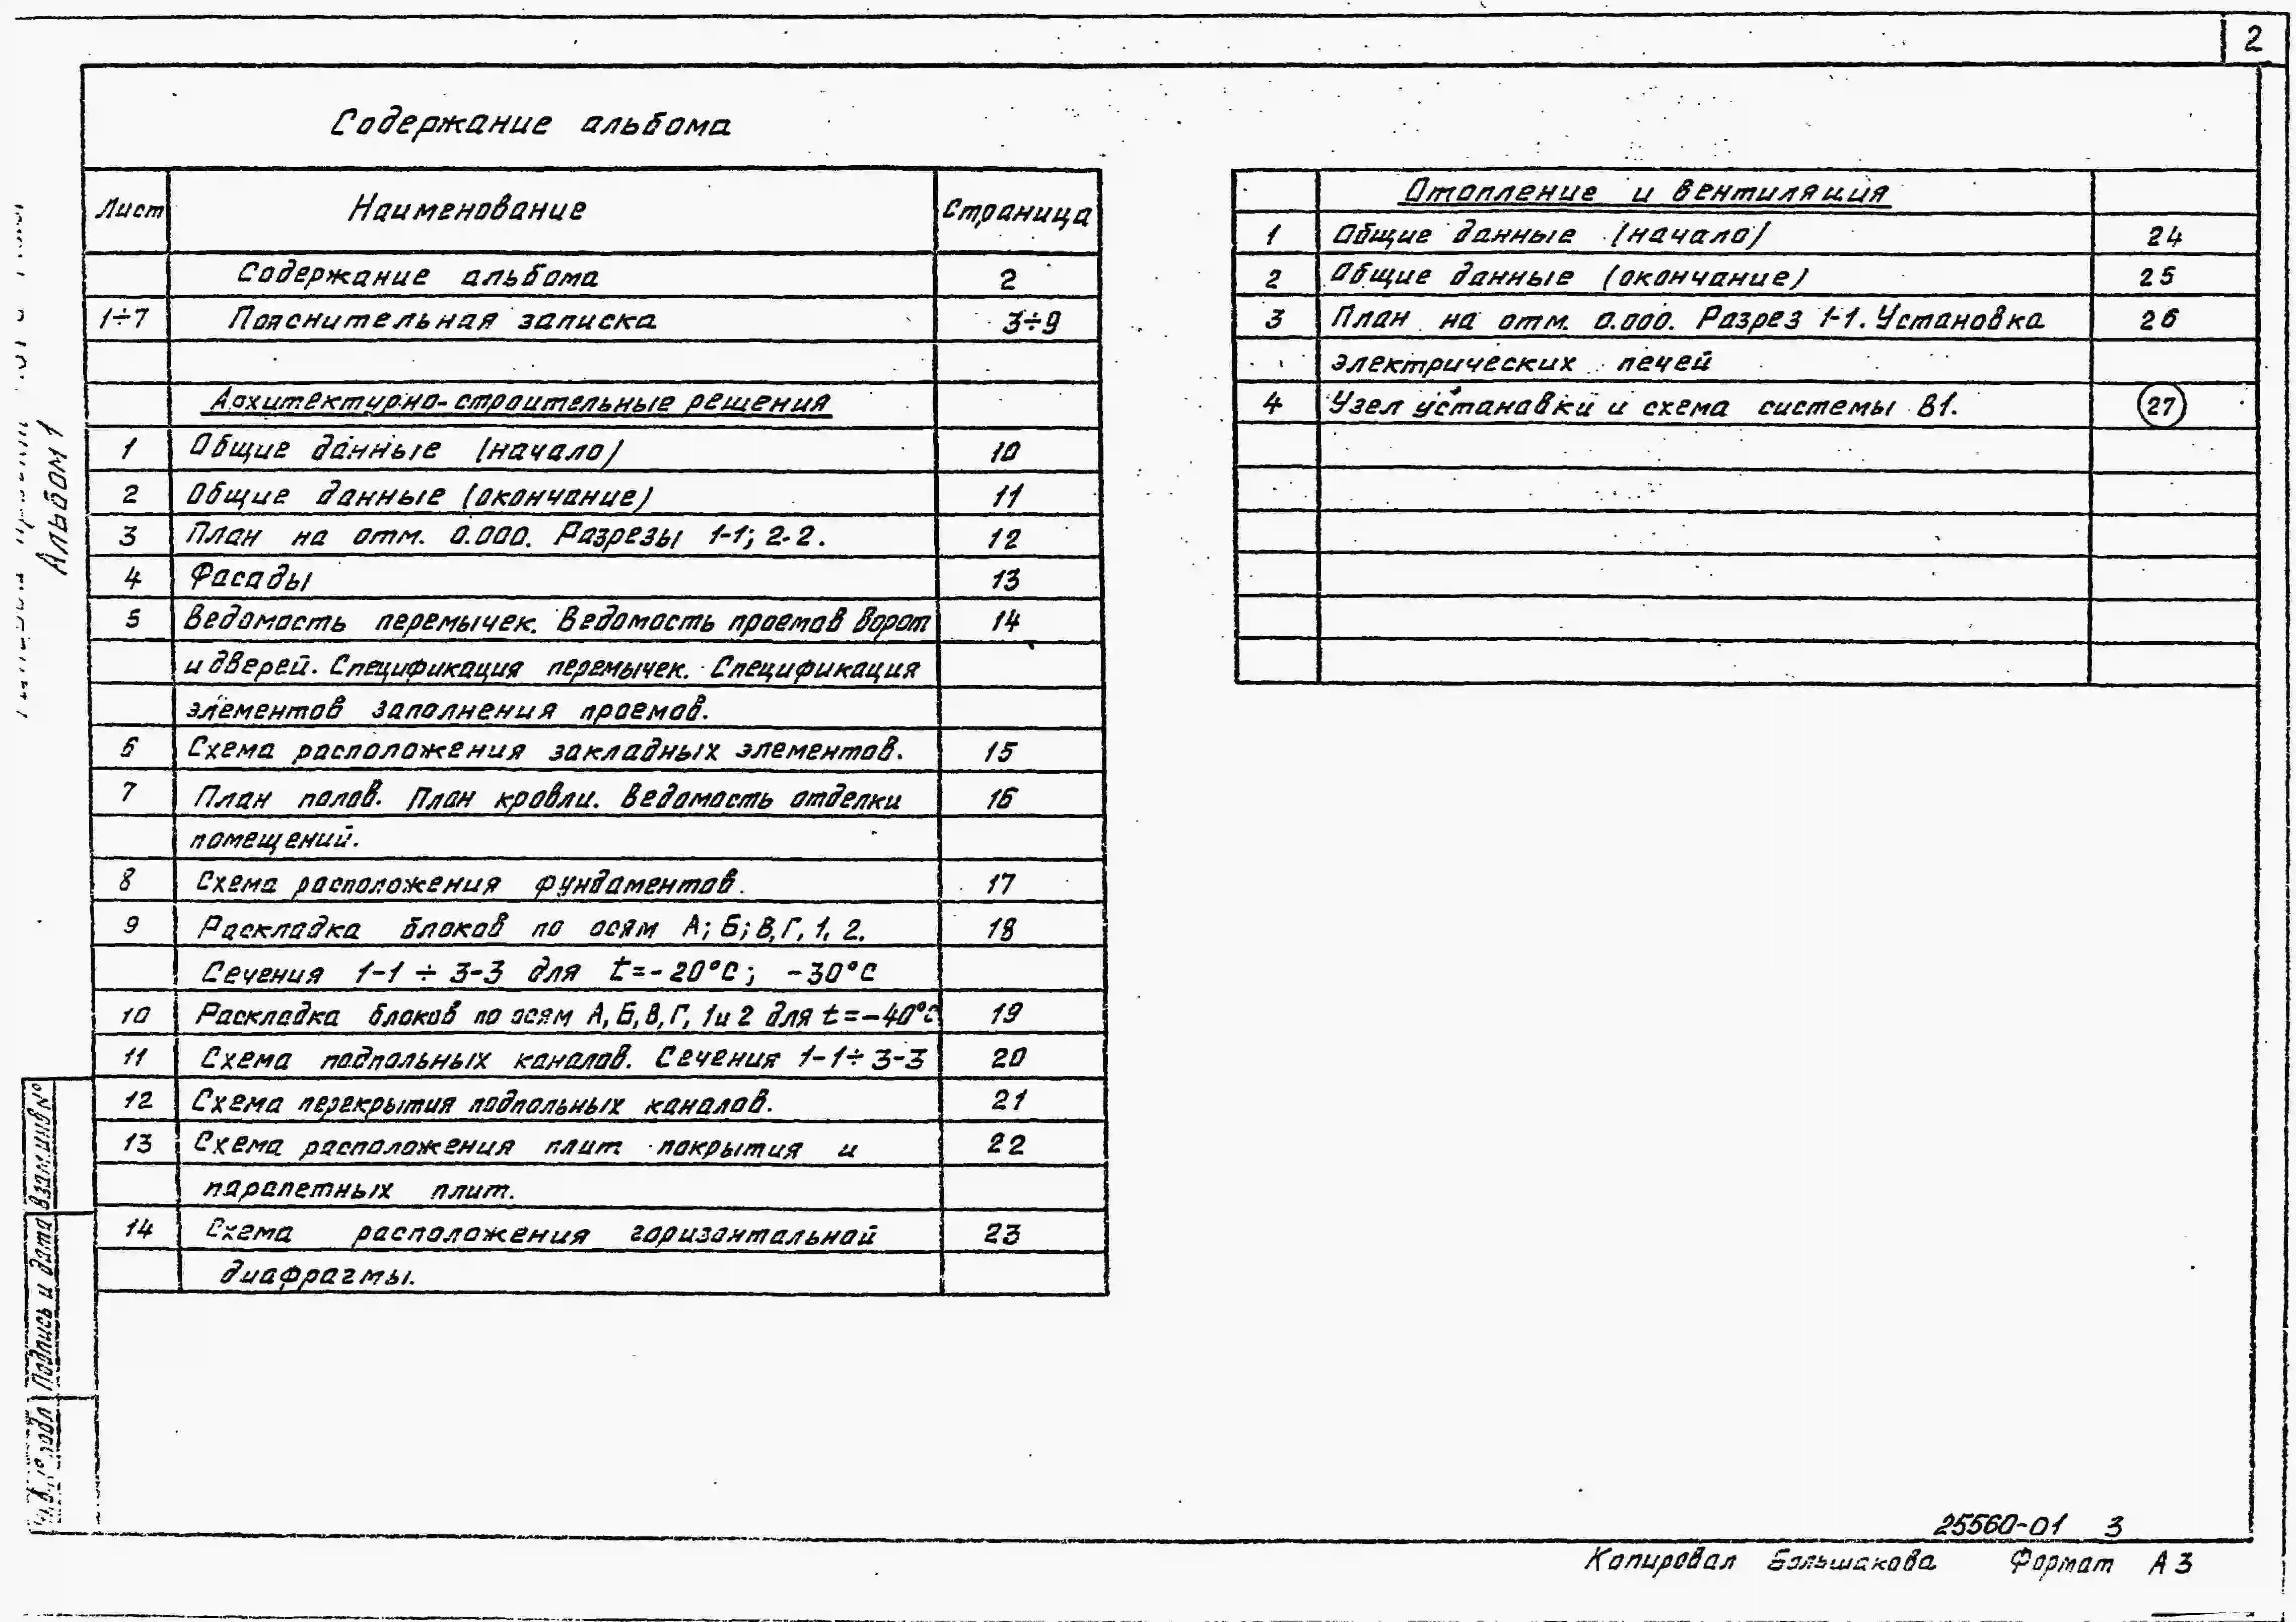 2
Содержание альбома
Лист Наименование Страница
Содержание альбома 2
1÷7 Пояснительная записка 3÷9
Архитектурно-строительные решения
1 Общие данные (начало) 10
2 Общие данные (окончание) 11
3 План на отм. 0.000. Разрезы 1-1; 2-2. 12
4 Фасады 13
5 Ведомость перемычек. Ведомость проемов ворот 14
и дверей. Спецификация перемычек. Спецификация
элементов заполнения проемов.
6 Схема расположения закладных элементов. 15
7 План полов. План кровли. Ведомость отделки 16
помещений.
8 Схема расположения фундаментов. 17
9 Раскладка блоков по осям А; Б; В, Г, 1, 2. 18
Сечения 1-1 ÷ 3-3 для t=-20°С; -30°С
10 Раскладка блоков по осям А, Б, В, Г, 1 и 2 для t=-40°С 19
11 Схема подпольных каналов. Сечения 1-1÷3-3 20
12 Схема перекрытия подпольных каналов. 21
13 Схема расположения плит покрытия и 22
парапетных плит.
14 Схема расположения горизонтальной 23
диафрагмы.
Отопление и вентиляция
1 Общие данные (начало) 24
2 Общие данные (окончание) 25
3 План на отм. 0.000. Разрез 1-1. Установка 26
электрических печей
4 Узел установки и схема системы В1. 27
Альбом 1
Взам.инв№
Подпись и дата
подл
25560-01 3
Копировал Большакова Формат А3